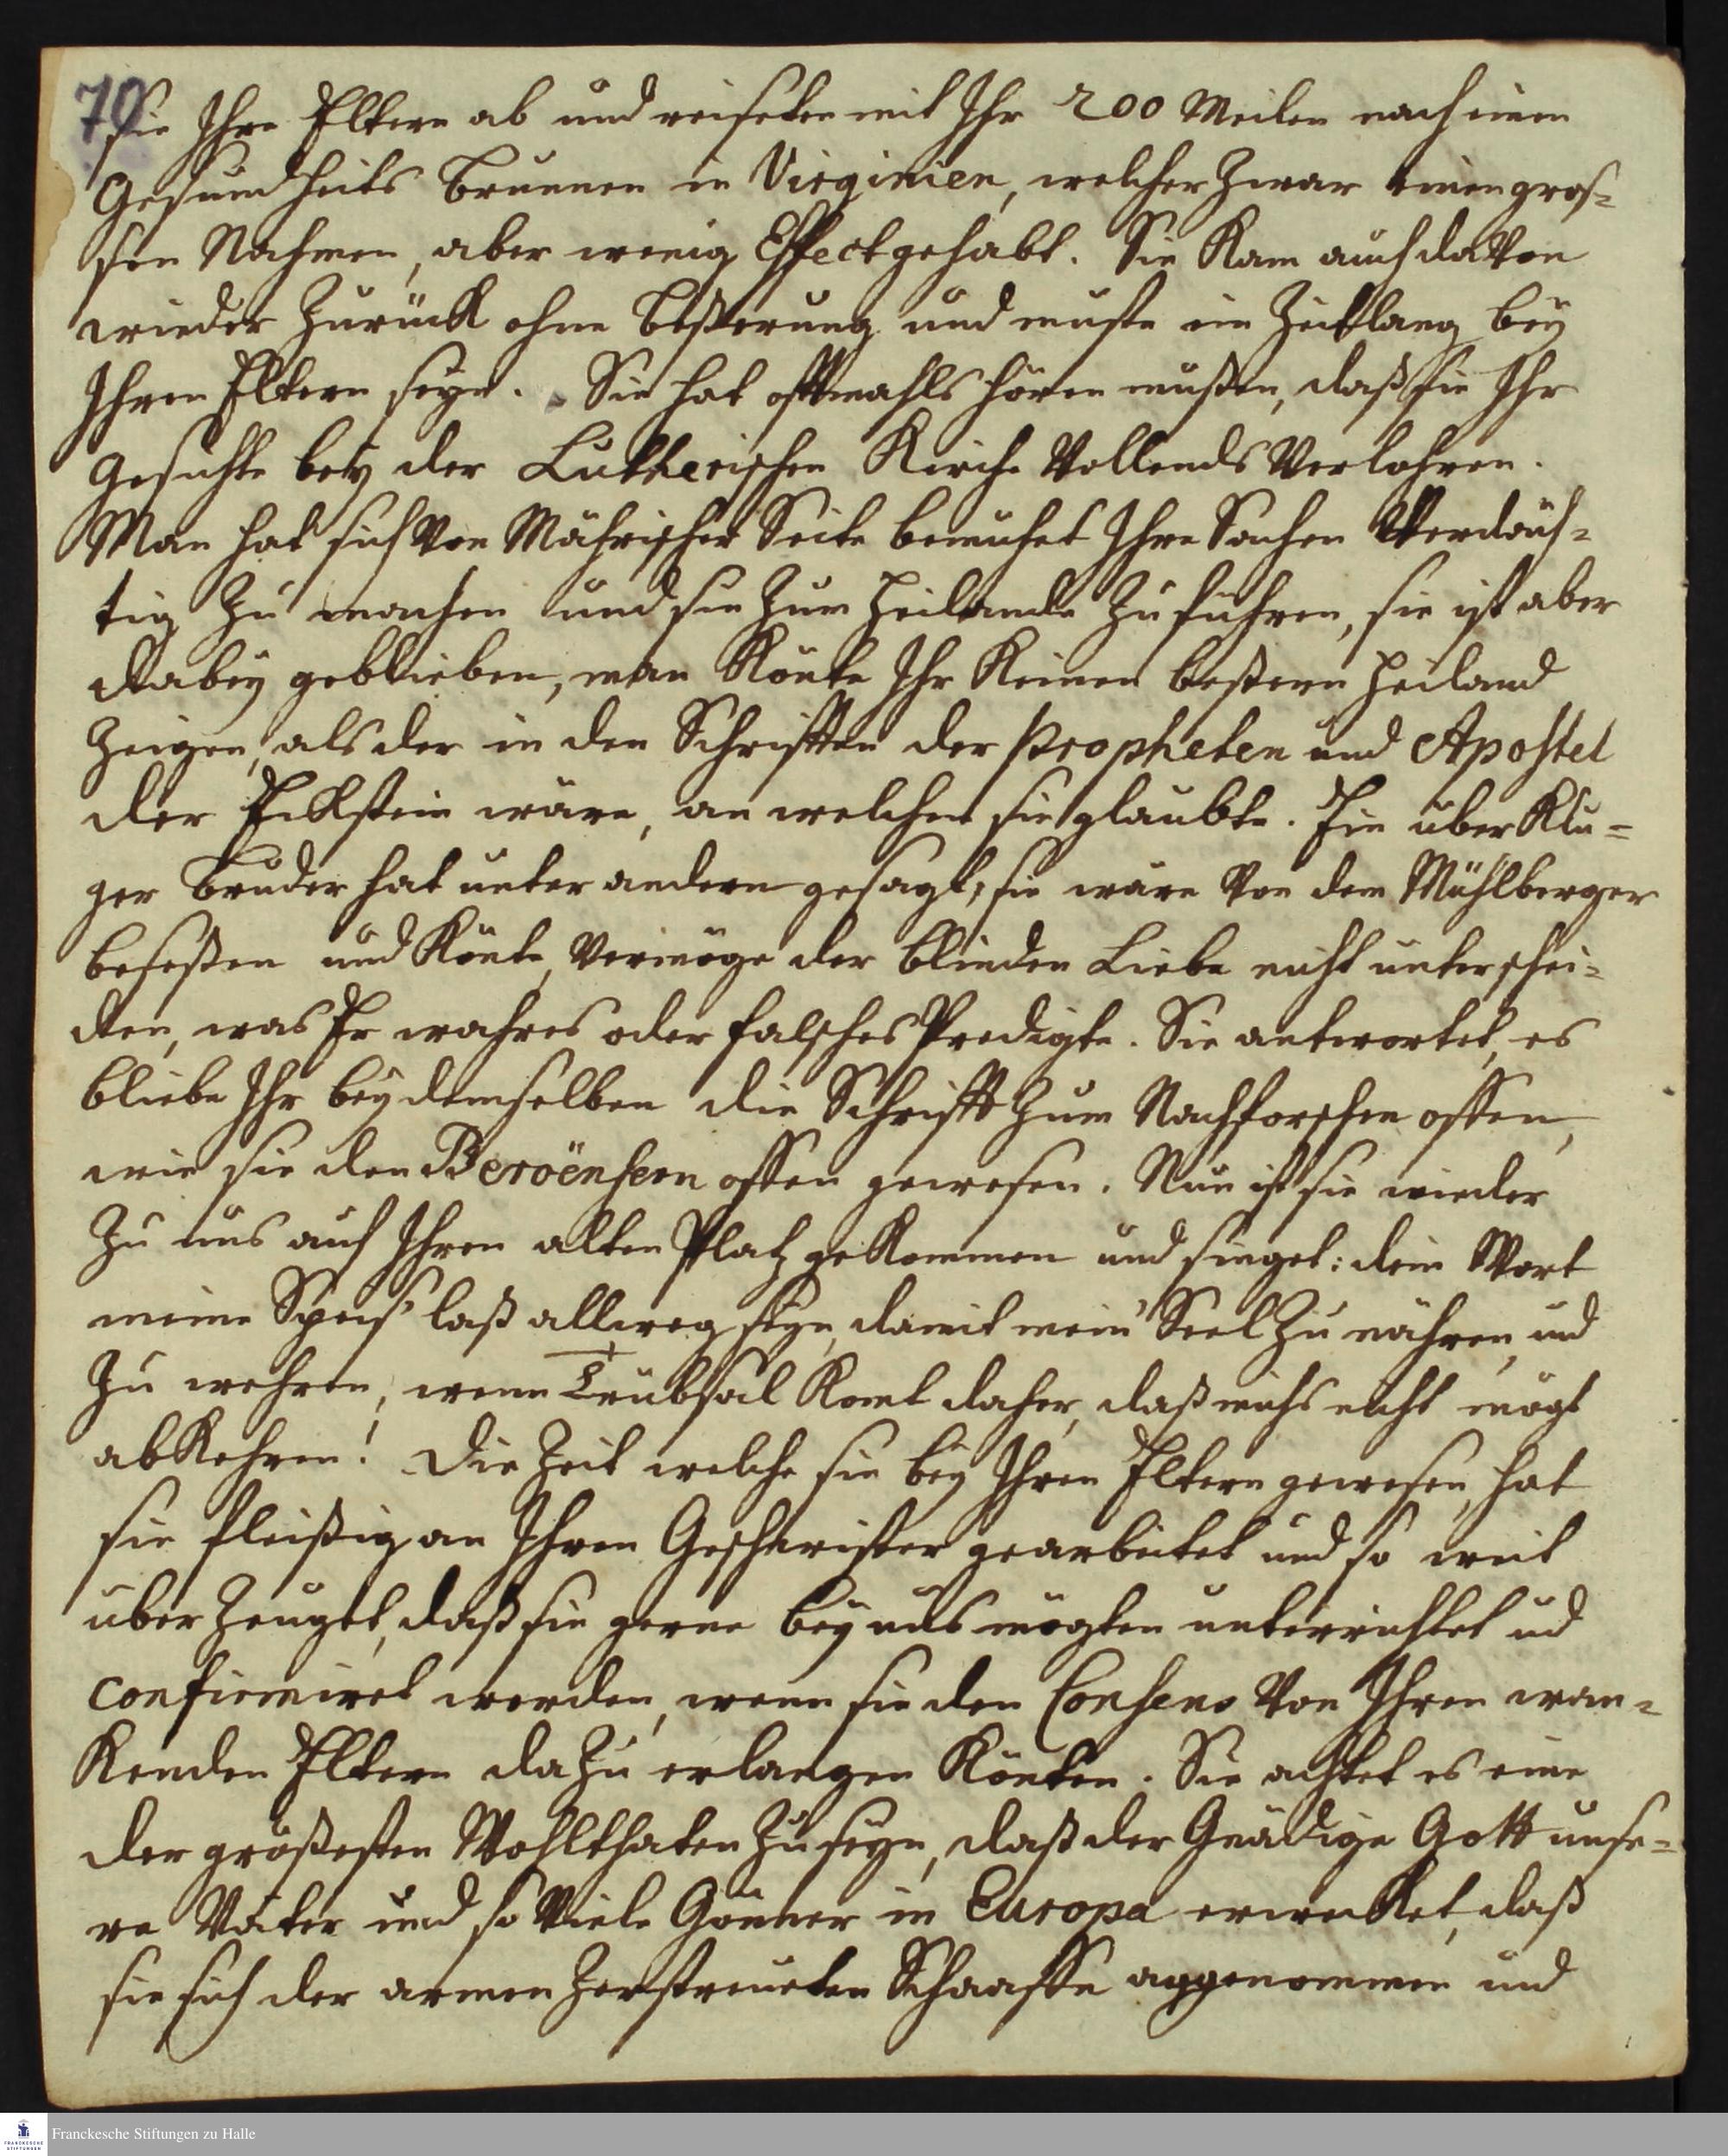 70
sie Ihre Eltern ab und reiseten mit Ihr 200 Meilen nach einem
Gesundheits Brunnen in Virginien, welcher zwar einen gros-
sen Nahmen, aber wenig Effect gehabt. Sie kam auch davon
wieder zurück ohne Beßerung und muste ein Zeitlang bey
Ihren Eltern seyn. Sie hat oftmahls hören mußen, daß sie Ihr
Gesichte bey der Lutherischen Kirche vollends verlohren.
Man hat sich von Mährischer Seite bemühet Ihre Sachen verdäch-
tig zu machen und sie zum Heilande zu führen, sie ist aber
dabey geblieben, man könte Ihr keinen beßern Heiland
zeigen, als der in den Schrifften der Propheten und Apostel
der Eckstein wäre, an welchen sie glaubte. Ein überklu-
ger Bruder hat unter andern gesagt, sie wäre von dem Mühlberger
beseßen und könte, vermöge der blinden Liebe nicht unterschei-
den, was Er wahres oder falsches Predigte. Sie antwortet, es
bliebe Ihr bey demselben die Schrifft zum Nachforschen offen,
wie sie den Beroënsern offen gewesen. Nun ist sie wieder
zu uns auf Ihren alten Platz gekommen und singet: dein Wort
meine Speis' laß allweg seyn, damit mein' Seel zu nähren, und
zu wehren, wenn Trübsal komt daher, daß michs nicht mögt
abkehren! Die Zeit welche sie bey Ihren Eltern gewesen, hat
sie fleißig an Ihren Geschwister gearbeitet und so weit
überzeuget, daß sie gerne bey uns mögten unterrichtet ud
confirmiret werden, wenn sie den Consens von Ihren wan-
kenden Eltern dazu erlangen könten. Sie achtet es eine
der größesten Wohlthaten zu seyn, daß der Gnädige Gott unse-
re Väter und so viele Gönner in Europa erwecket, daß
sie sich der armen zerstreueten Schaaffe angenommen und
Franckesche Stiftungen zu Halle